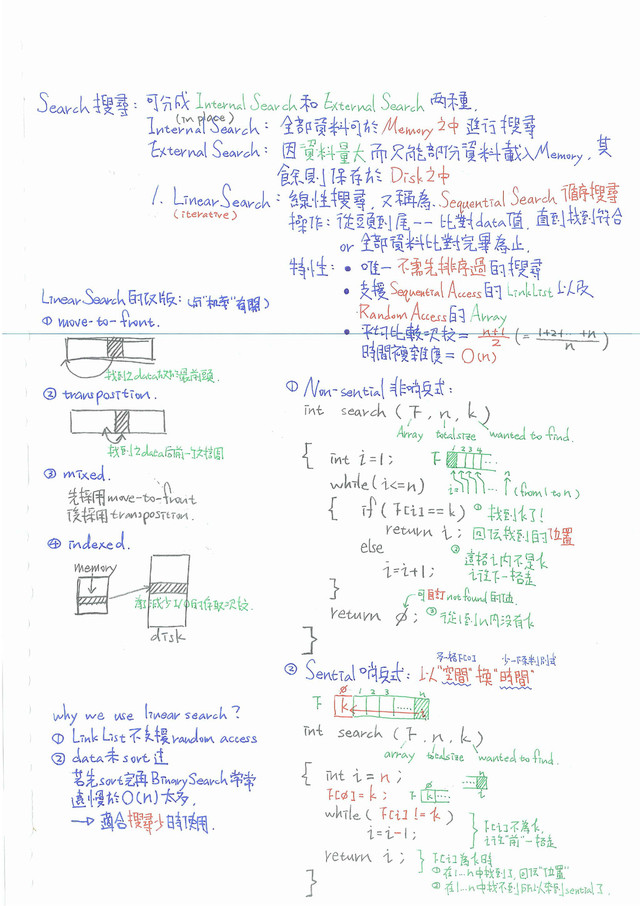 Search 搜尋: 可分成 Internal Search 和 External Search 兩種.
(in place)
Internal Search: 全部資料可於 Memory 之中 進行搜尋
External Search: 因資料量大而只能部份資料載入Memory, 其
餘則保存於 Disk 之中
1. Linear Search: 線性搜尋, 又稱為 Sequential Search 循序搜尋
(iterative)
操作: 從頭到尾一一比對data值, 直到找到符合
or 全部資料比對完畢為止.
特性: • 唯一不需先排序過的搜尋
• 支援 Sequential Access 的 Link List 以及
Random Access 的 Array
• 平均比較次數 = n+1/2 (= 1+2+...+n/n)
時間複雜度 = O(n)
Linear Search 的改版: (與"機率"有關)
① move-to-front.
找到之data放到最前頭.
② transposition.
找到之data與前一位互換
③ mixed.
先採用 move-to-front
後採用 transposition.
④ indexed.
memory
減少I/O的存取次數.
disk
why we use linear search?
① Link List 不支援 random access
② data 未 sort 過
若先sort完再Binary Search 常常
遠慢於 O(n) 太多.
→ 適合搜尋少時使用.
① Non-sential 非哨兵式:
int search (F, n, k)
Array total size wanted to find.
{ int i=1; F 1 2 3 4 ...
while (i<=n) i= ... n (from 1 to n)
{ if (F[i] == k) ① 找到k了!
return i; 回傳找到的位置
else ② 這格i內不是k
i=i+1; i往下一格走
}
可自訂 not found 的值.
return Ø; ③ 從1到n內沒有k
}
② Sential 哨兵式: 以"空間"換"時間"
多一格F[0] 少一個判別式
F Ø 1 2 3 ... n
k
int search (F, n, k)
array total size wanted to find.
{ int i = n;
F[Ø] = k; F k ... i
while (F[i] != k) F[i]不為k,
i=i-1; i往"前"一格走
return i; F[i]為k時
① 在1...n中找到了, 回傳"位置"
② 在1...n中找不到所以拿到sential了.
}